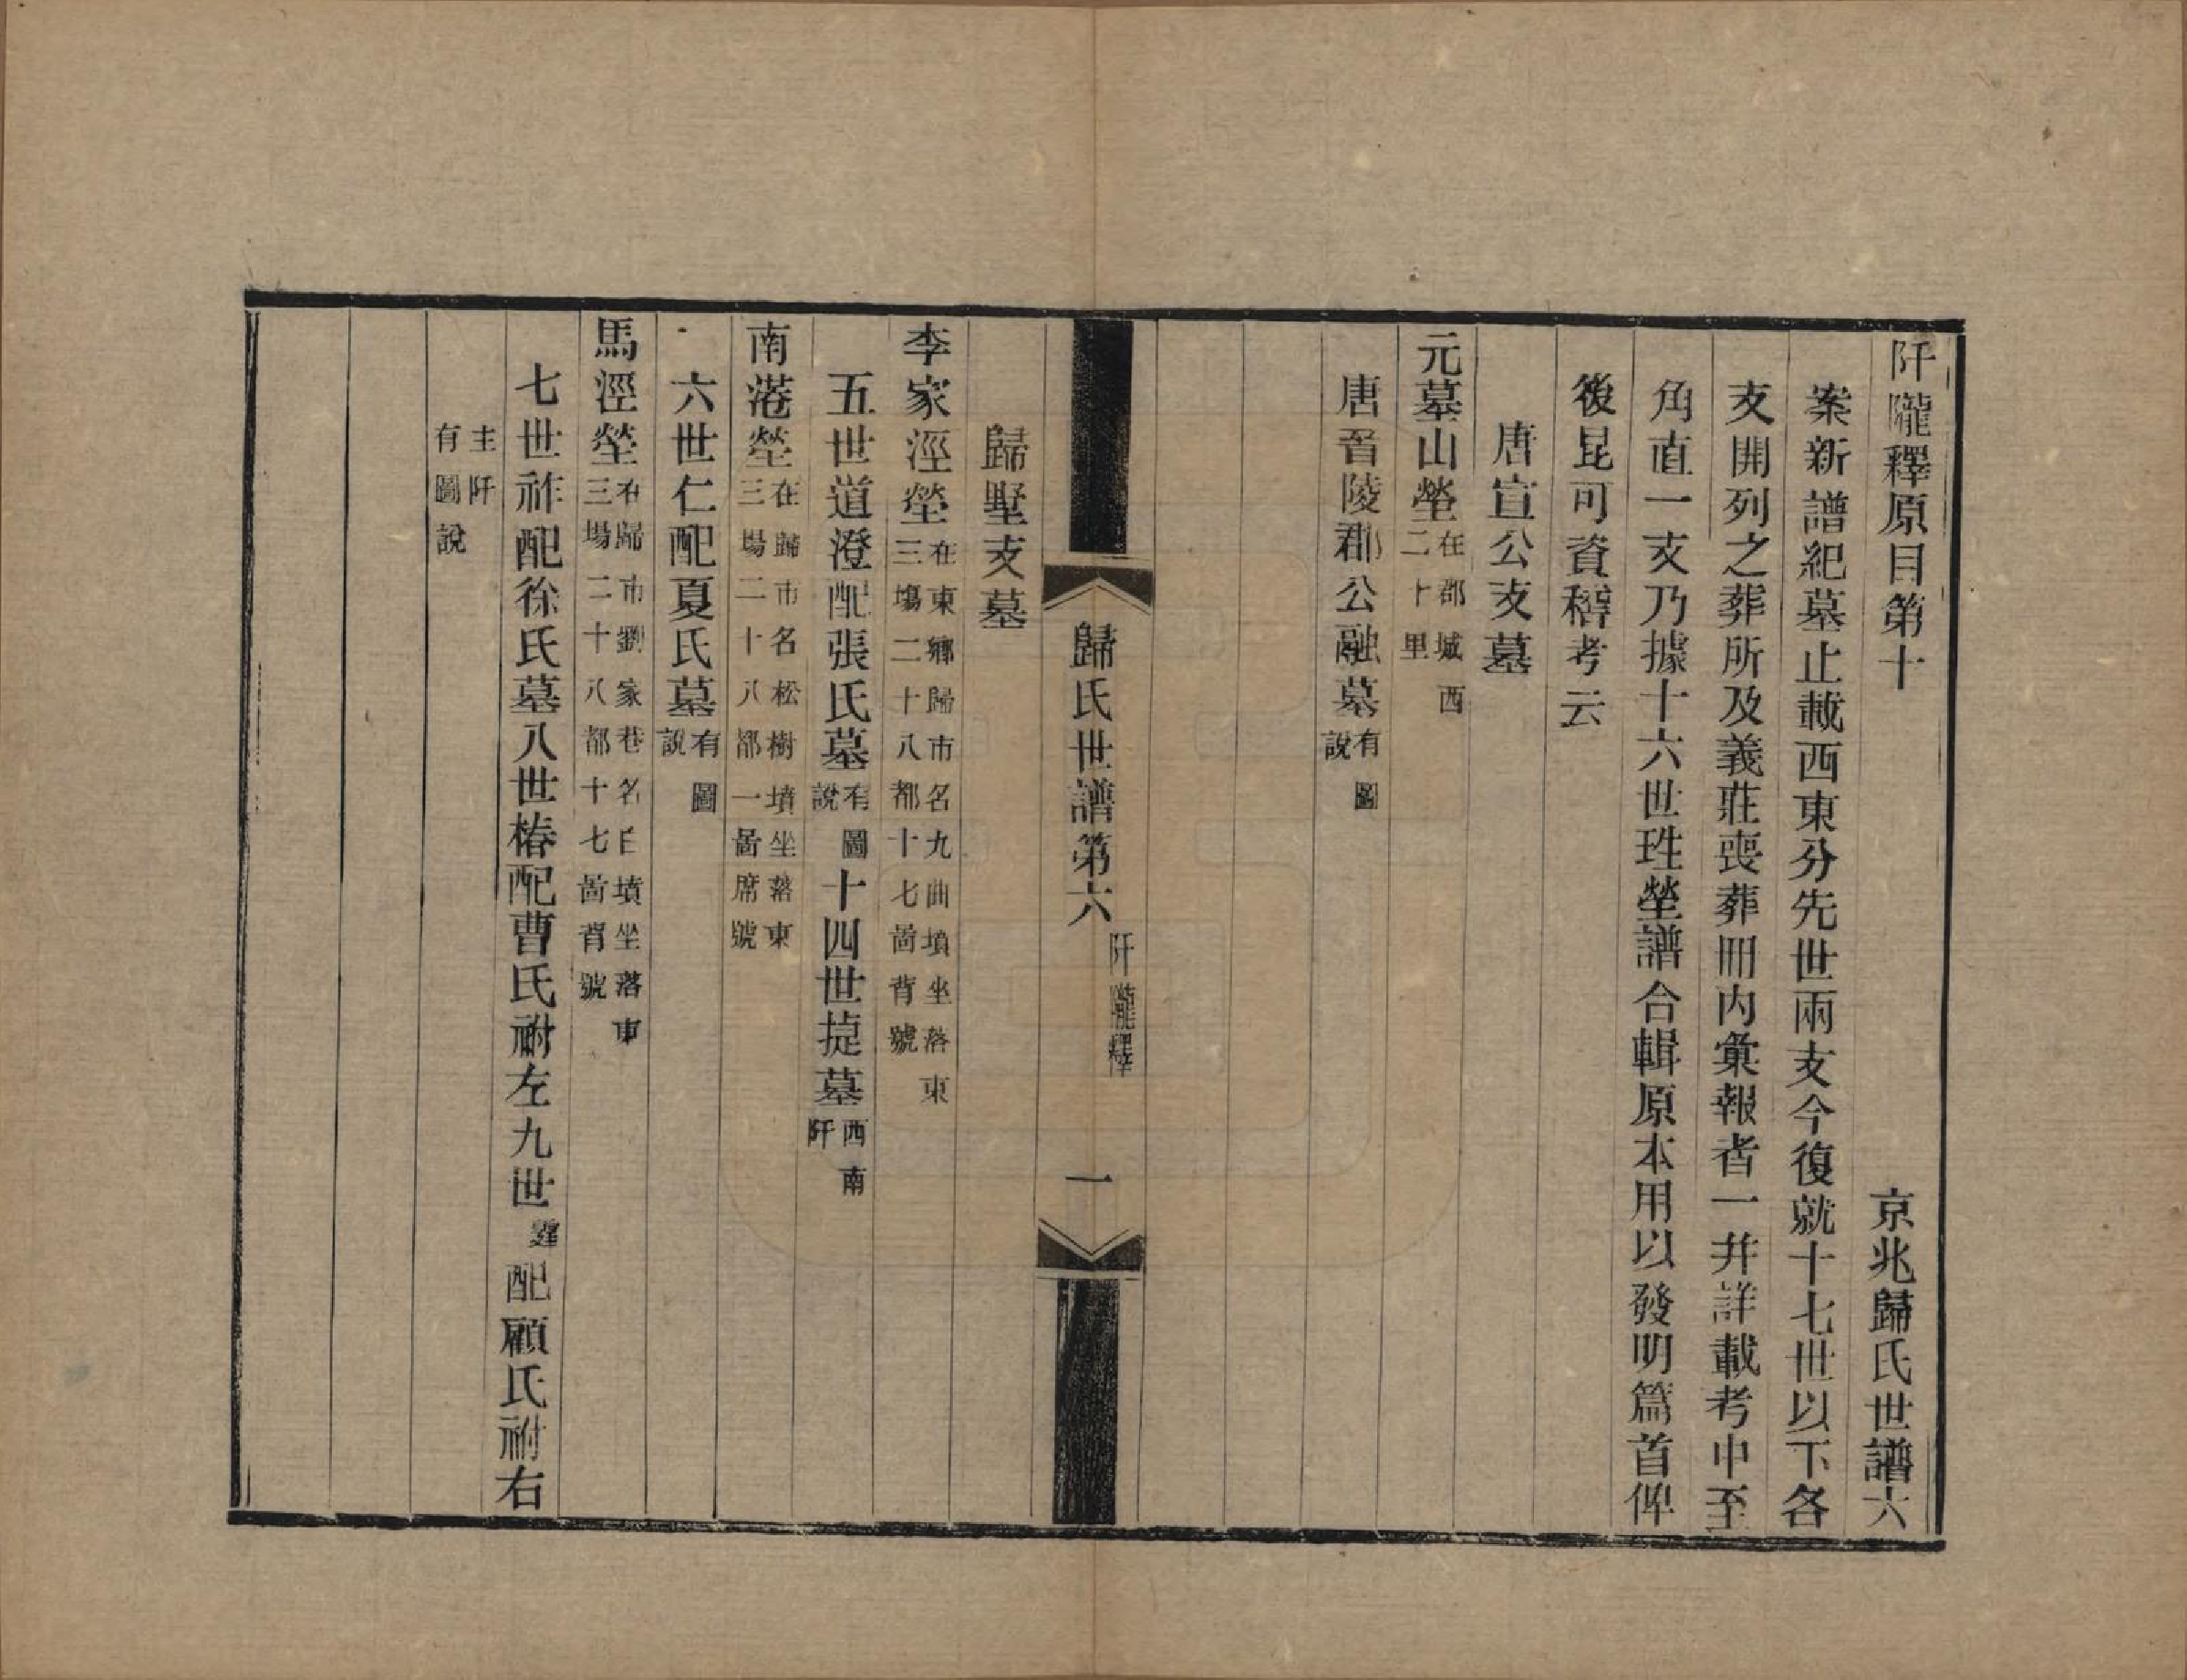 阡隴釋原目第十　京兆歸氏世譜六
案新譜紀墓止載西東分先世兩支今復就十七世以下各
支開列之葬所及義莊喪葬冊内彙報者一并詳載考中至
角直一支乃據十六世珄塋譜合輯原本用以發明篇首俾
後昆可資稽考云
唐宣公支墓
元墓山塋在郡城西二十里
唐晉陵郡公融墓有圖說
歸氏世譜第六　阡隴釋　一
歸墅支墓
李家涇塋在東鄉歸市名九曲墳坐落東三場二十八都十七啚背號
五世道澄配張氏墓有圖說十四世㨗墓西南阡
南港塋在歸市名松樹墳坐落東三場二十八都一啚席號
六世仁配夏氏墓有圖說
馬涇塋在歸市劉家巷名白墳坐落東三場二十八都十七啚背號
七世祚配徐氏墓八世椿配曹氏祔左九世霆配顧氏祔右
主阡有圖說